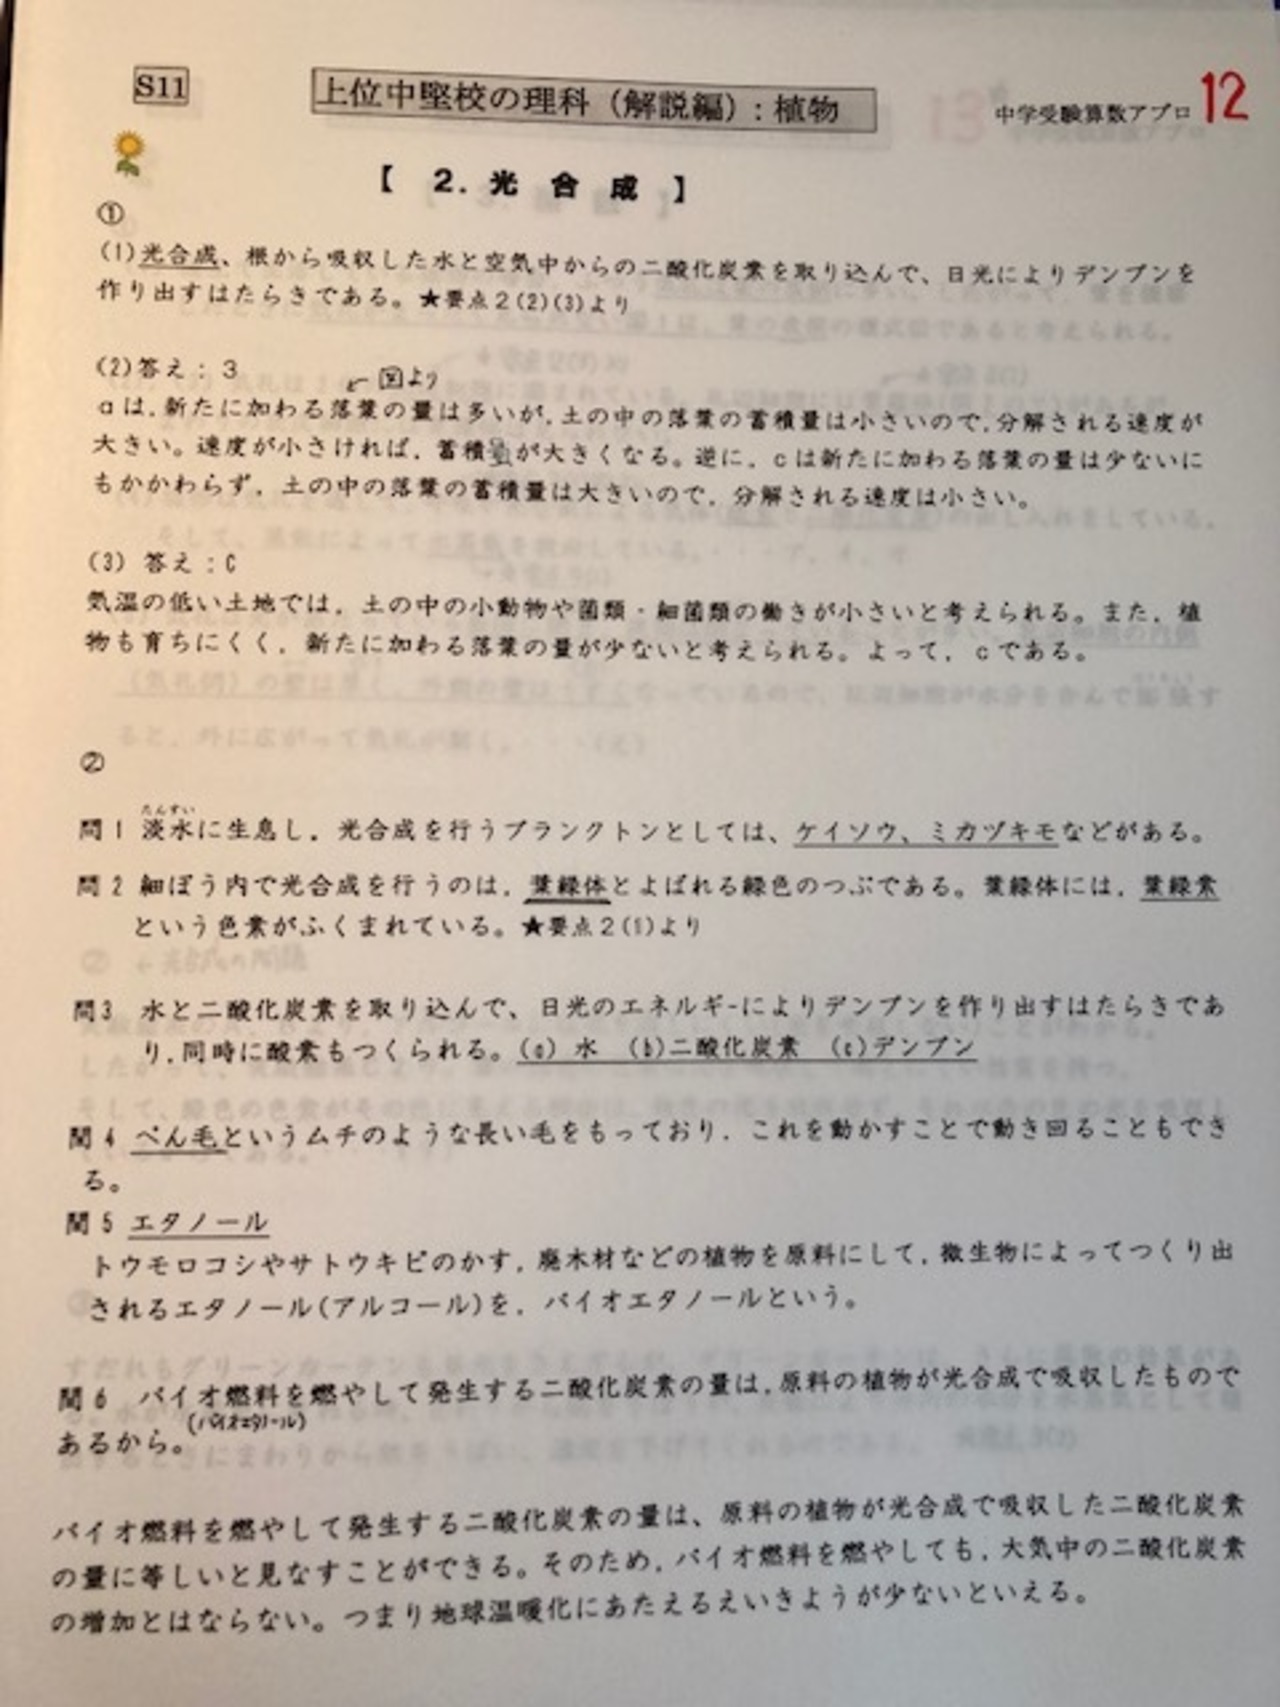 S11
上位中堅校の理科（解説編）：植物
中学受験算数アプロ
12
【 2. 光 合 成 】
①
(1)光合成、根から吸収した水と空気中からの二酸化炭素を取り込んで、日光によりデンプンを
作り出すはたらきである。★要点２(2)(3)より
(2)答え：３
← 図より
aは,新たに加わる落葉の量は多いが,土の中の落葉の蓄積量は小さいので,分解される速度が
大きい。速度が小さければ,蓄積量が大きくなる。逆に,cは新たに加わる落葉の量は少ないに
もかかわらず,土の中の落葉の蓄積量は大きいので,分解される速度は小さい。
(3) 答え：C
気温の低い土地では,土の中の小動物や菌類・細菌類の働きが小さいと考えられる。また,植
物も育ちにくく,新たに加わる落葉の量が少ないと考えられる。よって,cである。
②
たんすい
問1 淡水に生息し,光合成を行うプランクトンとしては、ケイソウ、ミカヅキモなどがある。
問2 細ぼう内で光合成を行うのは,葉緑体とよばれる緑色のつぶである。葉緑体には,葉緑素
という色素がふくまれている。★要点２(1)より
問3 水と二酸化炭素を取り込んで、日光のエネルギーによりデンプンを作り出すはたらきであ
り,同時に酸素もつくられる。(a) 水 (b)二酸化炭素 (c)デンプン
問4 べん毛というムチのような長い毛をもっており,これを動かすことで動き回ることもでき
る。
問5 エタノール
トウモロコシやサトウキビのかす,廃木材などの植物を原料にして,微生物によってつくり出
されるエタノール(アルコール)を,バイオエタノールという。
問6 バイオ燃料を燃やして発生する二酸化炭素の量は,原料の植物が光合成で吸収したもので
(バイオエタノール)
あるから。
バイオ燃料を燃やして発生する二酸化炭素の量は、原料の植物が光合成で吸収した二酸化炭素
の量に等しいと見なすことができる。そのため,バイオ燃料を燃やしても,大気中の二酸化炭素
の増加とはならない。つまり地球温暖化にあたえるえいきようが少ないといえる。